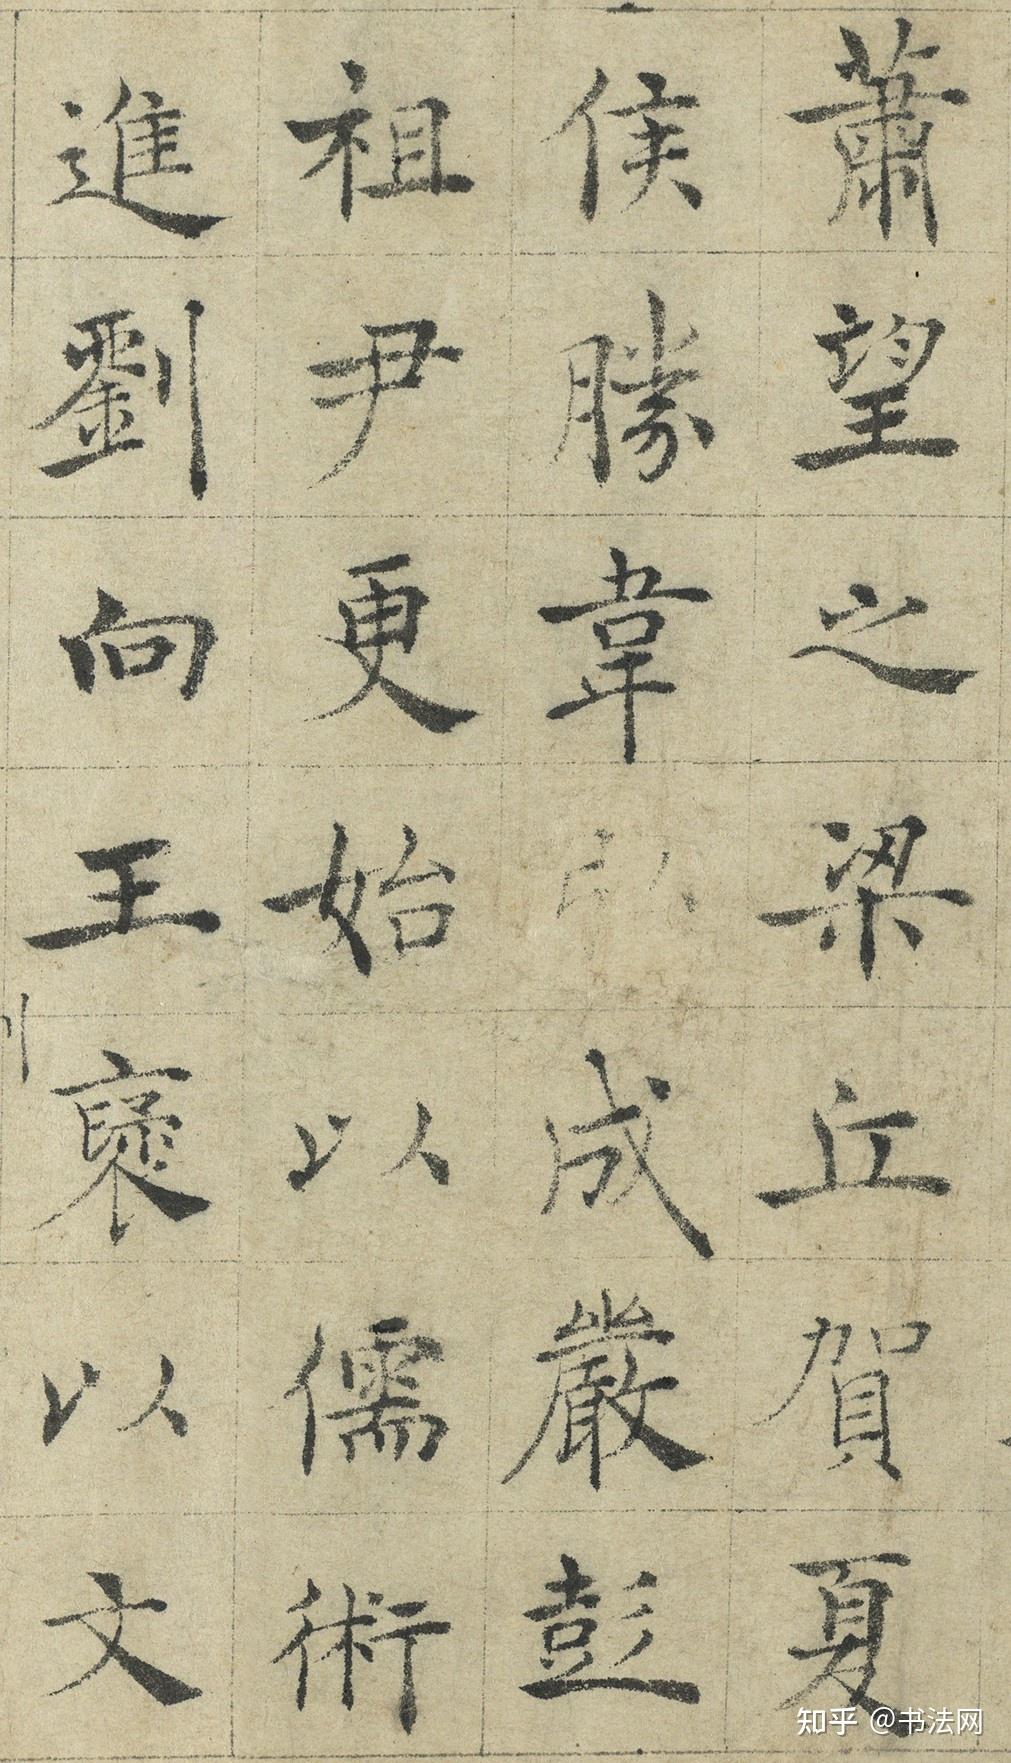 蕭望之梁丘賀夏
侯勝韋成嚴彭
祖尹更始以儒術
進劉向王襃以文
知乎 @书法网